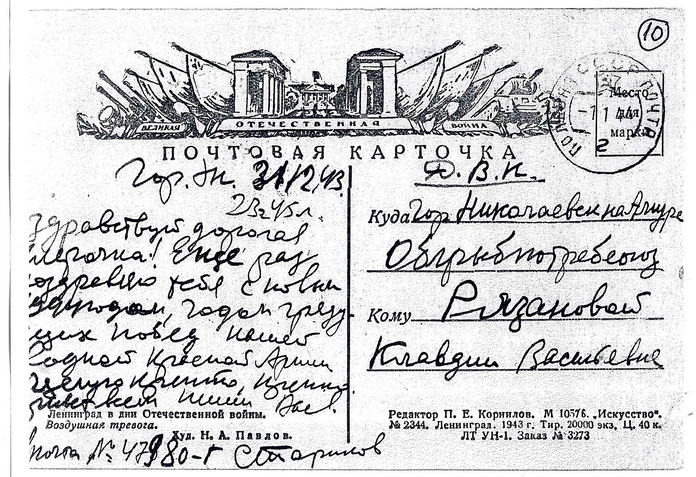 10
ВЕЛИКАЯ ОТЕЧЕСТВЕННАЯ ВОЙНА
ПОЧТОВАЯ КАРТОЧКА
СССР ПОЧТА
-1 1 44
2
Место
для
марки
Гор. 31/12.43.
23 ч 45 м.
Здравствуй дорогая
! Еще раз
поздравляю тебя с новым
годом, годом гряду-
щих побед нашей
родной Красной Армии
Целую крепко, крепко.
Привет всем пиши
почта № 47980-г Стариков
Ленинград в дни Отечественной войны.
Воздушная тревога.
Худ. Н. А. Павлов.
Д. В. К.
Куда Гор Николаевск на Амуре
Облрыбпотребсоюз
Кому Рязановой
Клавдии Васильевне
Редактор П. Е. Корнилов. М 10576. „Искусство".
№ 2344. Ленинград. 1943 г. Тир. 20000 экз. Ц. 40 к.
ЛТ УН-1. Заказ № 3273